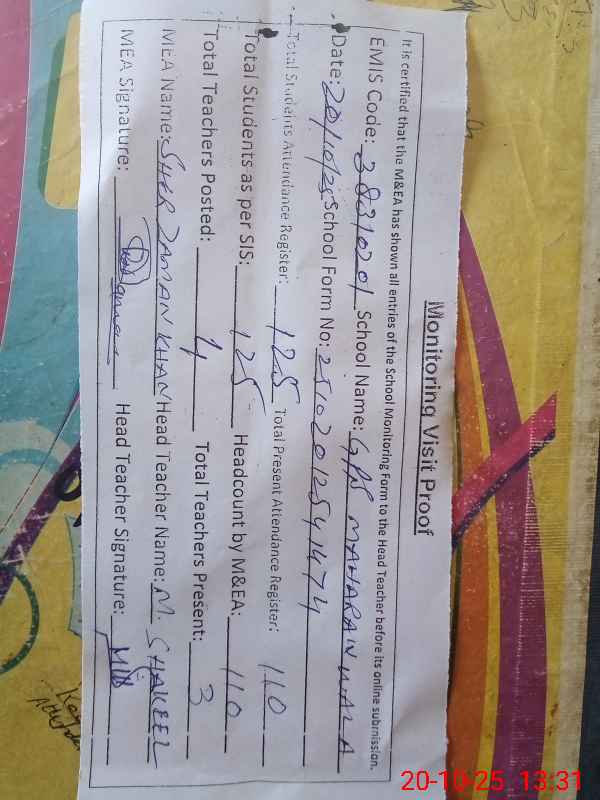 Monitoring Visit Proof
It is certified that the M&EA has shown all entries of the School Monitoring Form to the Head Teacher before its online submission.
EMIS Code: 38310201 School Name: GPS MAHARAN WALA
Date: 20/10/25 School Form No: 2510201254 1474
Total Students Attendance Register: 125 Total Present Attendance Register: 110
Total Students as per SIS: 125 Headcount by M&EA: 110
Total Teachers Posted: 4 Total Teachers Present: 3
MEA Name: SHER ZAMAN KHAN Head Teacher Name: M. SHAKEEL
MEA Signature: Head Teacher Signature:
20-10-25 13:31